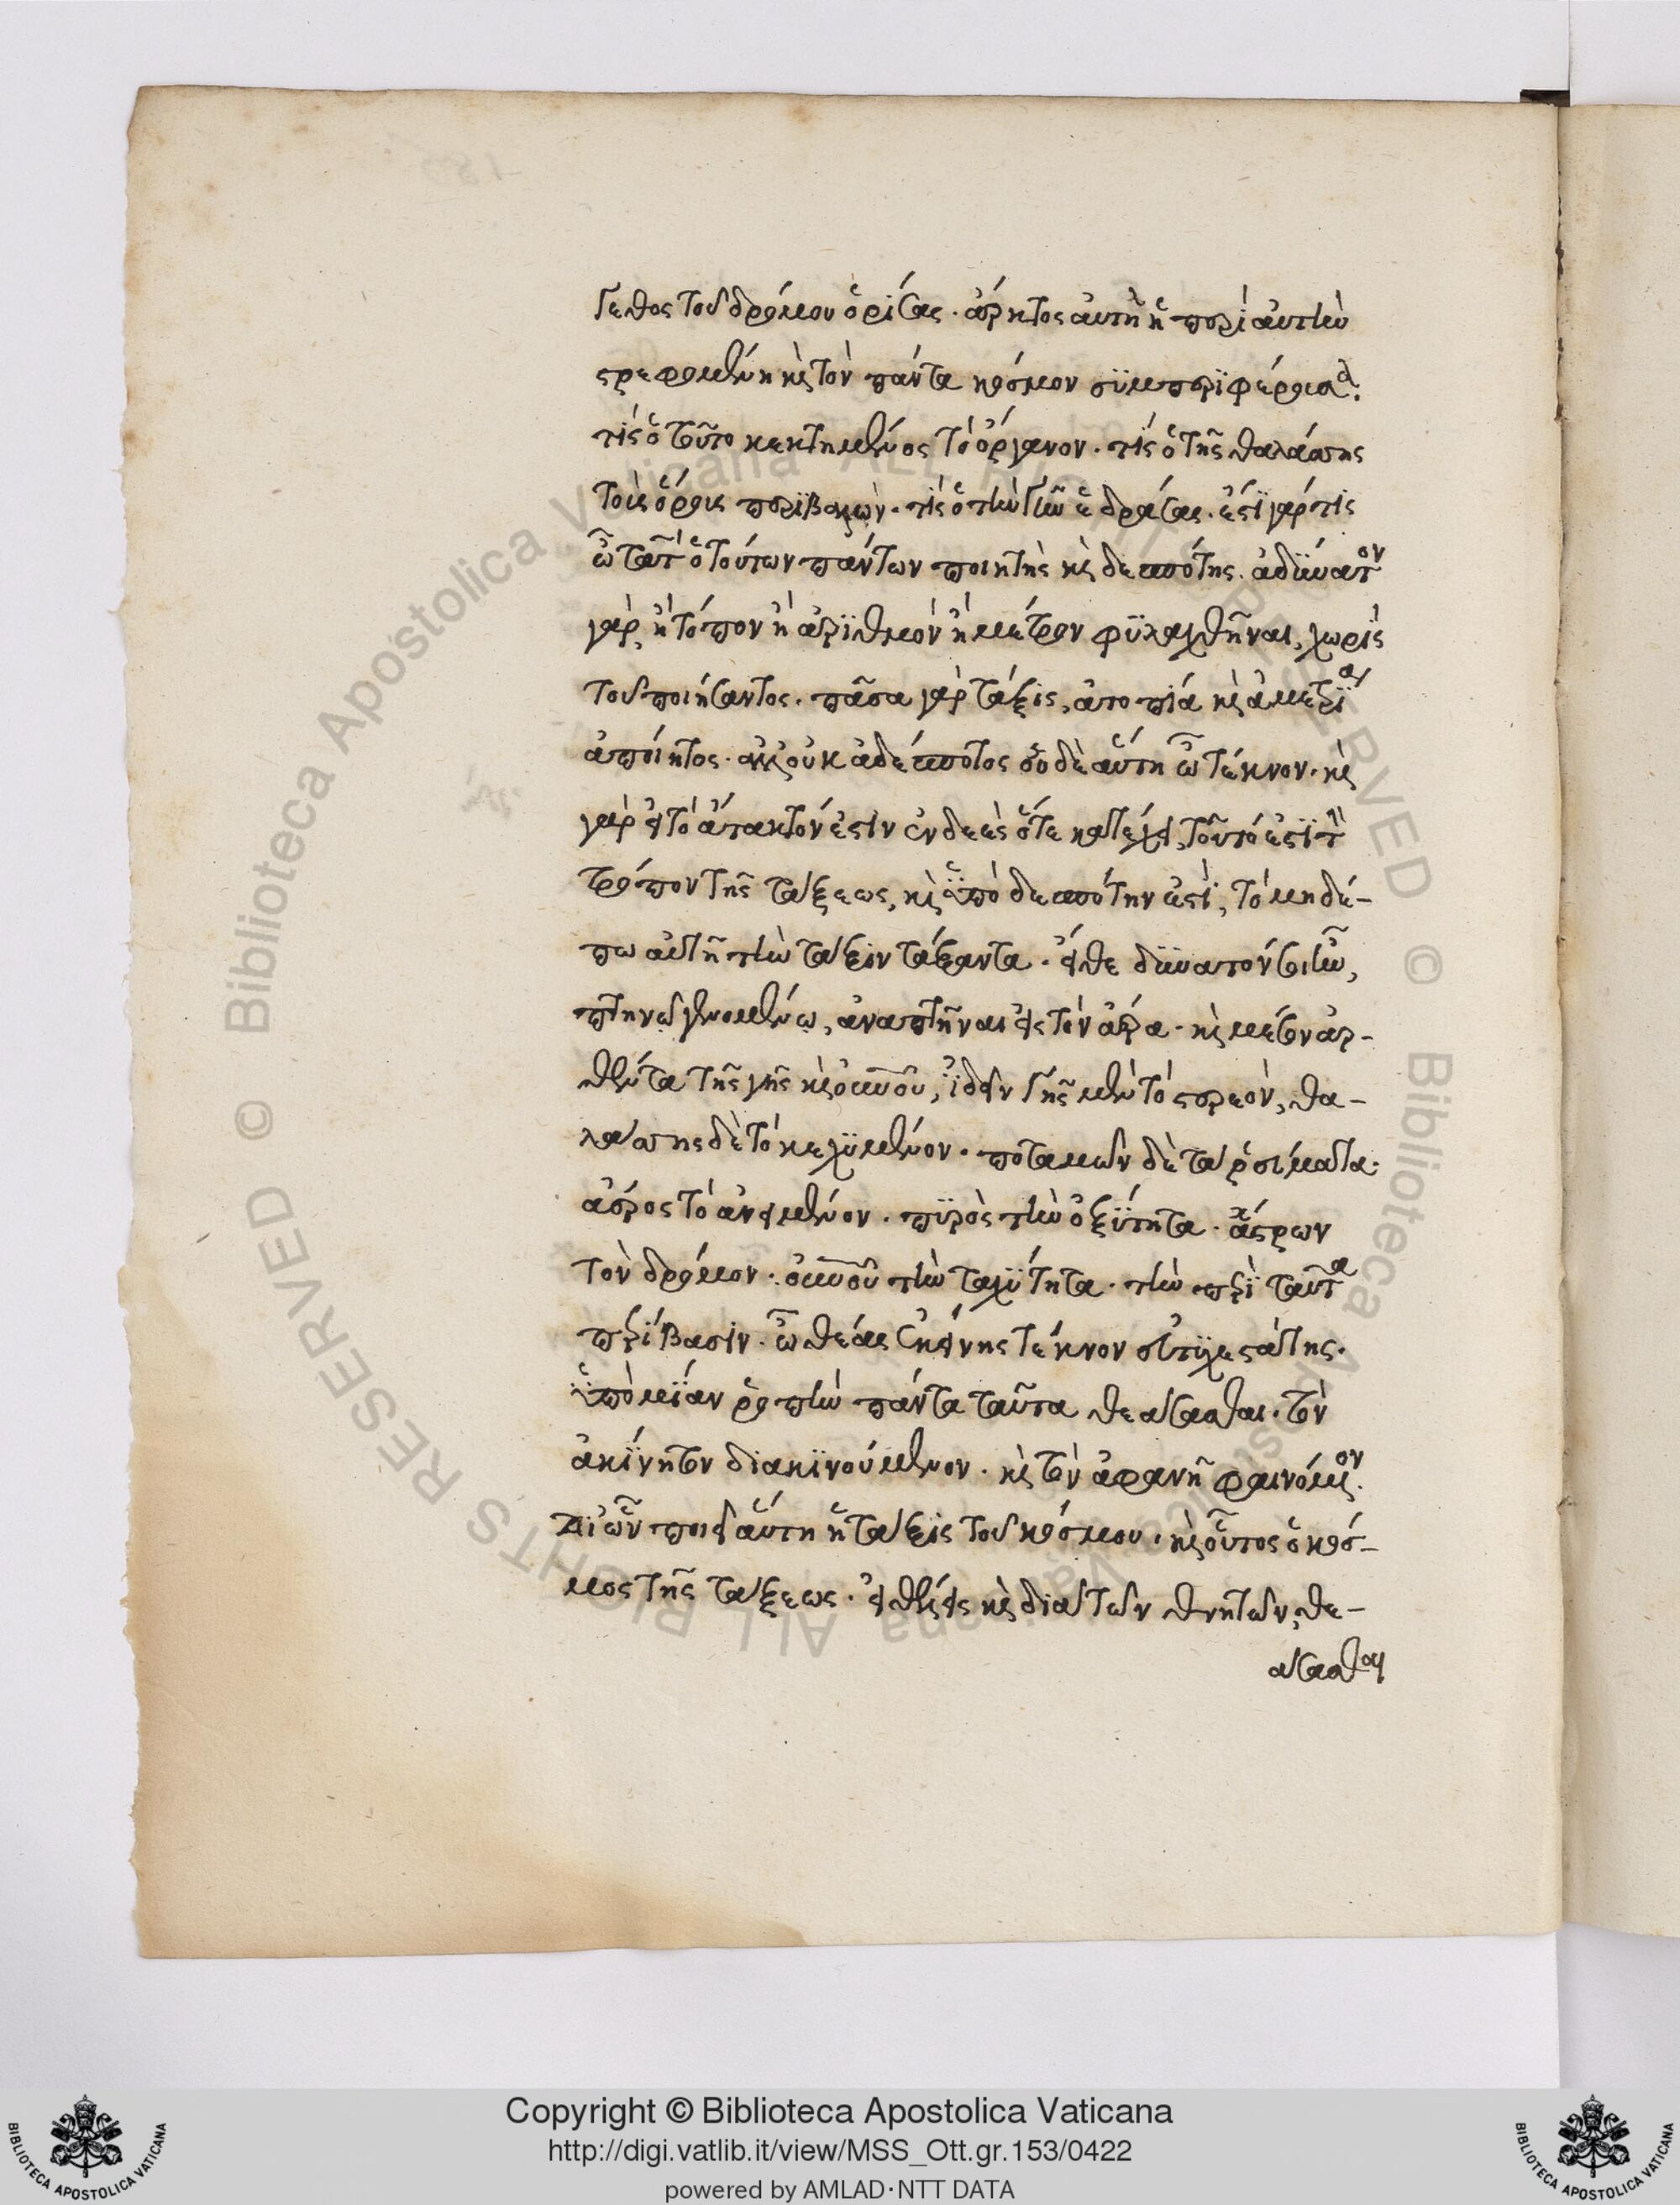 γεθος τοῦ δρόμου ὁρίσας. ἄρκτος αὐτὴ ἡ περὶ αὐτὴν
στρεφομένη καὶ τὸν πάντα κόσμον συμπεριφέρουσα.
τίς ὁ τοῦτο κεκτημένος τὸ ὄργανον. τίς ὁ τῆς θαλάσσης
τοὺς ὅρους περιβαλών. τίς ὁ τὴν γῆν ἑδράσας. ἔστι γάρ τις
ὦ τὰτ ὁ τούτων πάντων ποιητὴς καὶ δεσπότης. ἀδύνατον
γὰρ, ἢ τόπον ἢ ἀριθμὸν ἢ μέτρον φυλαχθῆναι, χωρὶς
τοῦ ποιήσαντος. πᾶσα γὰρ τάξις, ἀτοπία καὶ ἀμετρία
ἀποίητος. ἀλλ' οὐκ ἀδέσποτος οὐδὲ αὕτη ὦ τέκνον. καὶ
γὰρ εἰ τὸ ἄτακτόν ἐστιν ἐνδεὲς ὅτε κατέχει, τοῦτό ἐστι τὸν
τρόπον τῆς τάξεως, καὶ ὑπὸ δεσπότην ἐστὶ, τὸν μηδέ-
πω αὐτῇ τὴν τάξιν τάξαντα. εἴθε δυνατόν σοι ἦν,
πτηνῷ γενομένῳ, ἀναπτῆναι εἰς τὸν ἀέρα. καὶ μέσον ἀρ-
θέντα τῆς γῆς καὶ οὐνοῦ, ἰδεῖν γῆς μὲν τὸ στερεὸν, θα-
λάσσης δὲ τὸ κεχυμένον. ποταμῶν δὲ τὰ ῥεύματα.
ἀέρος τὸ ἀνειμένον. πυρὸς τὴν ὀξύτητα. ἄστρων
τὸν δρόμον. οὐνοῦ τὴν ταχύτητα. τὴν περὶ ταῦτα
περίβασιν. ὦ θέας ἐκείνης τέκνον εὐτυχεστάτης.
ὑπὸ μίαν ῥοπὴν πάντα ταῦτα θεάσασθαι. τὸν
ἀκίνητον διακινούμενον. καὶ τὸν ἀφανῆ φαινόμενον.
δι' ὧν ποιεῖ αὕτη ἡ τάξις τοῦ κόσμου. καὶ οὗτος ὁ κόσ-
μος τῆς τάξεως. εἰ θέλεις καὶ διὰ τῶν θνητῶν, θε-
άσασθαι
Copyright © Biblioteca Apostolica Vaticana
http://digi.vatlib.it/view/MSS_Ott.gr.153/0422
powered by AMLAD·NTT DATA